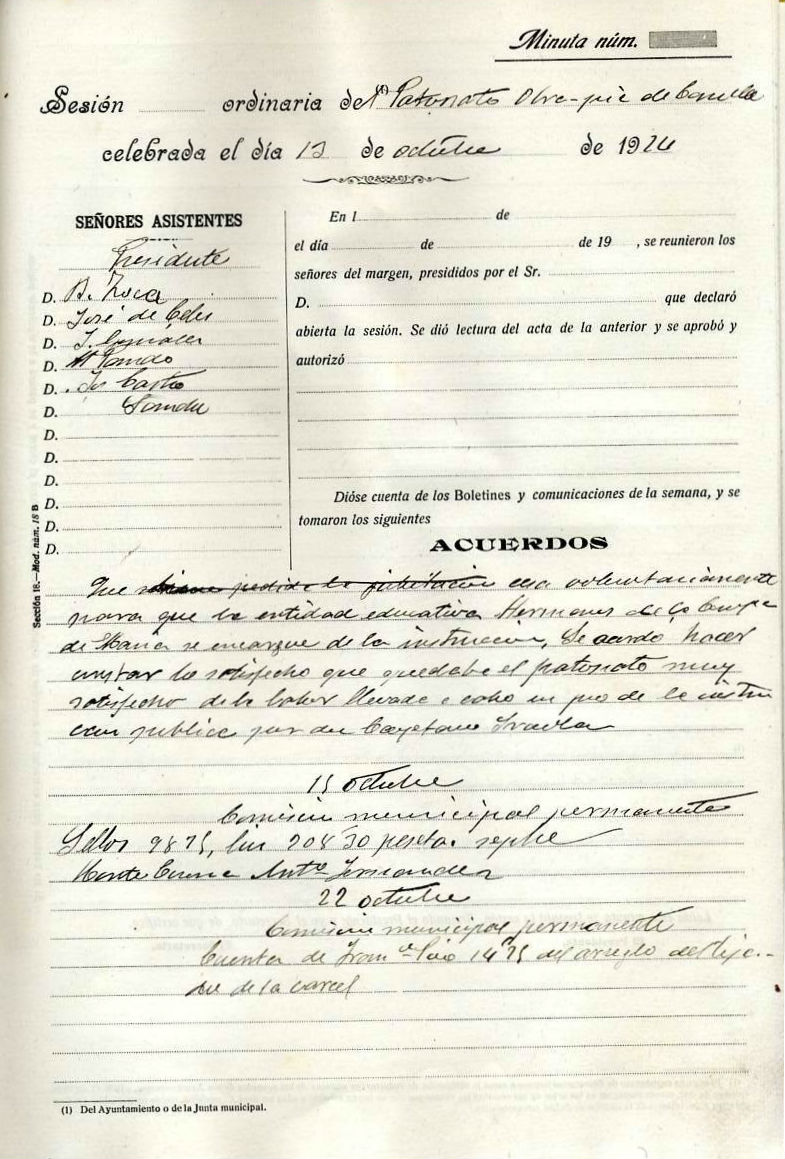 Minuta núm.
Sesión ordinaria del (1) Patronato Obra-pia de
celebrada el día 13 de octubre de 1924
SEÑORES ASISTENTES
Presidente
D. B. Roca
D. José de Celis
D. J.
D. M Pando
D. Jo Castro
D.
D.
D.
D.
D.
D.
D.
En l de
el día de de 19 , se reunieron los
señores del margen, presididos por el Sr.
D. que declaró
abierta la sesión. Se dió lectura del acta de la anterior y se aprobó y
autorizó
Dióse cuenta de los Boletines y comunicaciones de la semana, y se
tomaron los siguientes
ACUERDOS
Que pedido la jubilación voluntariamente
para que la entidad educativa Hermanos de
de Maria se encargue de la instrucion, Se acordo hacer
constar lo satisfecho que quedaba el patronato muy
satisfecho de la labor llevada a cabo en pro de la instru
ccion publica por don Cayetano
15 octubre
Comision municipal permanente
Sellos 9875, luz 208'30 pesetas sepbre
Monte Antº Fernandez
22 octubre
Comision municipal permanente
Cuenta de Franco 14'75 del arreglo del
de la carcel
Sección 18.—Mod. núm. 18 B
(1) Del Ayuntamiento o de la Junta municipal.